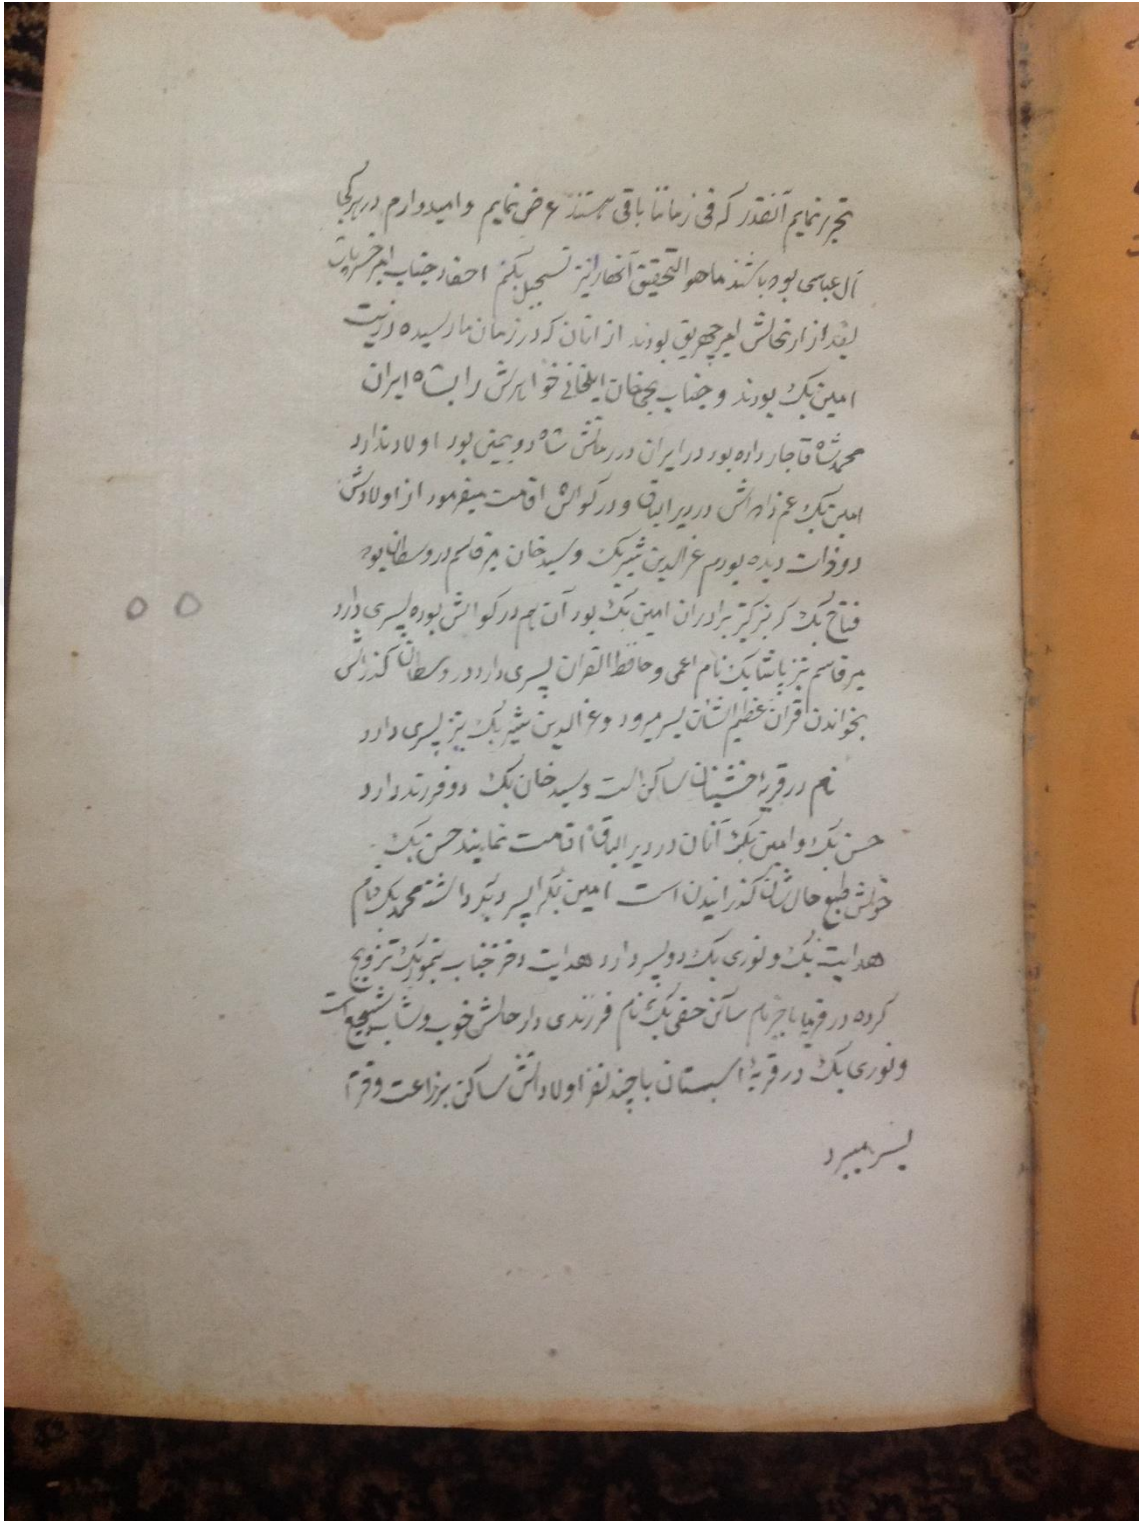 تحریر نمایم آنقدر که فی زماننا باقی هستند عرض نمایم و امیدوارم در هرکجا
آل عباسی بوده باشند ماهو التحقیق آنها را نیز تسجیل بکنم احفاد جناب امیر خسرو پاشا
بعد از ارتحالش امیر چهریق بودند از آنان که در زمان ما رسیده ذریت
امین بک بودند و جناب یحیی خان ایلخانی خواهرش را بشاه ایران
محمد شاه قاجار داده بود در ایران در رتلش شاه دویمین بود اولاد ندارد
امین بک عم زاده اش در دیر الباق و در کواش اقامت میفرمود از اولادش
دو ذات دیده بودم عزالدین شیر بک و سید خان میر قاسم در وسطان بود
فتاح بک که بزرگتر برادران امین بک بود آن هم در کواش بوده پسری دارد
میر قاسم نیز پاشا بک نام اعمی و حافظ القران پسری دارد در وسطان گذرانش
بخواندن قران عظیم الشان بسر میرود و عزالدین شیر بک نیز پسری دارد
نام در قریهٔ اخشینان ساکن است و سید خان بک دو فرزند دارد
حسن بک و امین بک آنان در دیر الباق اقامت نمایند حسن بک
خوش طبع حال شان گذرانیدن است امین بک را پسر دیگر داشته محمد بک نام
هدایت بک و نوری بک دو پسر دارد هدایت دختر جناب تیمور بک تزویج
کرده در قریه نام ساکن حقی بک نام فرزندی دارد حالش خوب و شاب شجیع است
و نوری بک در قریهٔ اسبستان با چند نفر اولادش ساکن بزراعت و قرآ
بسر میبرد